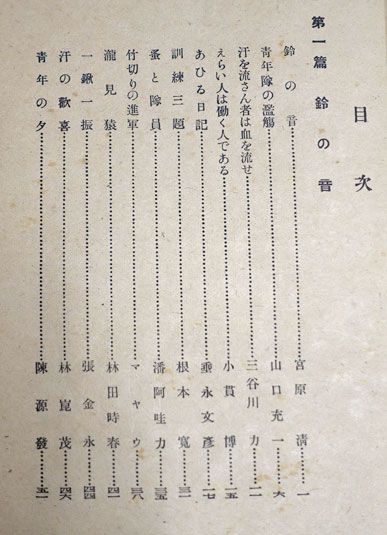 目次
第一篇 鈴の音
鈴の音……宮原清……一
青年隊の濫觴……山口充一……六
汗を流さん者は血を流せ……三谷川力……一一
えらい人は働く人である……小貫博……一五
あひる日記……垂永文彥……一七
訓練三題……根本寬……三一
蚤と隊員……潘阿哇力……三五
竹切りの進軍……マヤウ……三八
瀧見猿……林田時春……四一
一鍬一振……張金永……四四
汗の歡喜……林崑茂……四六
青年の夕……陳源發……五一